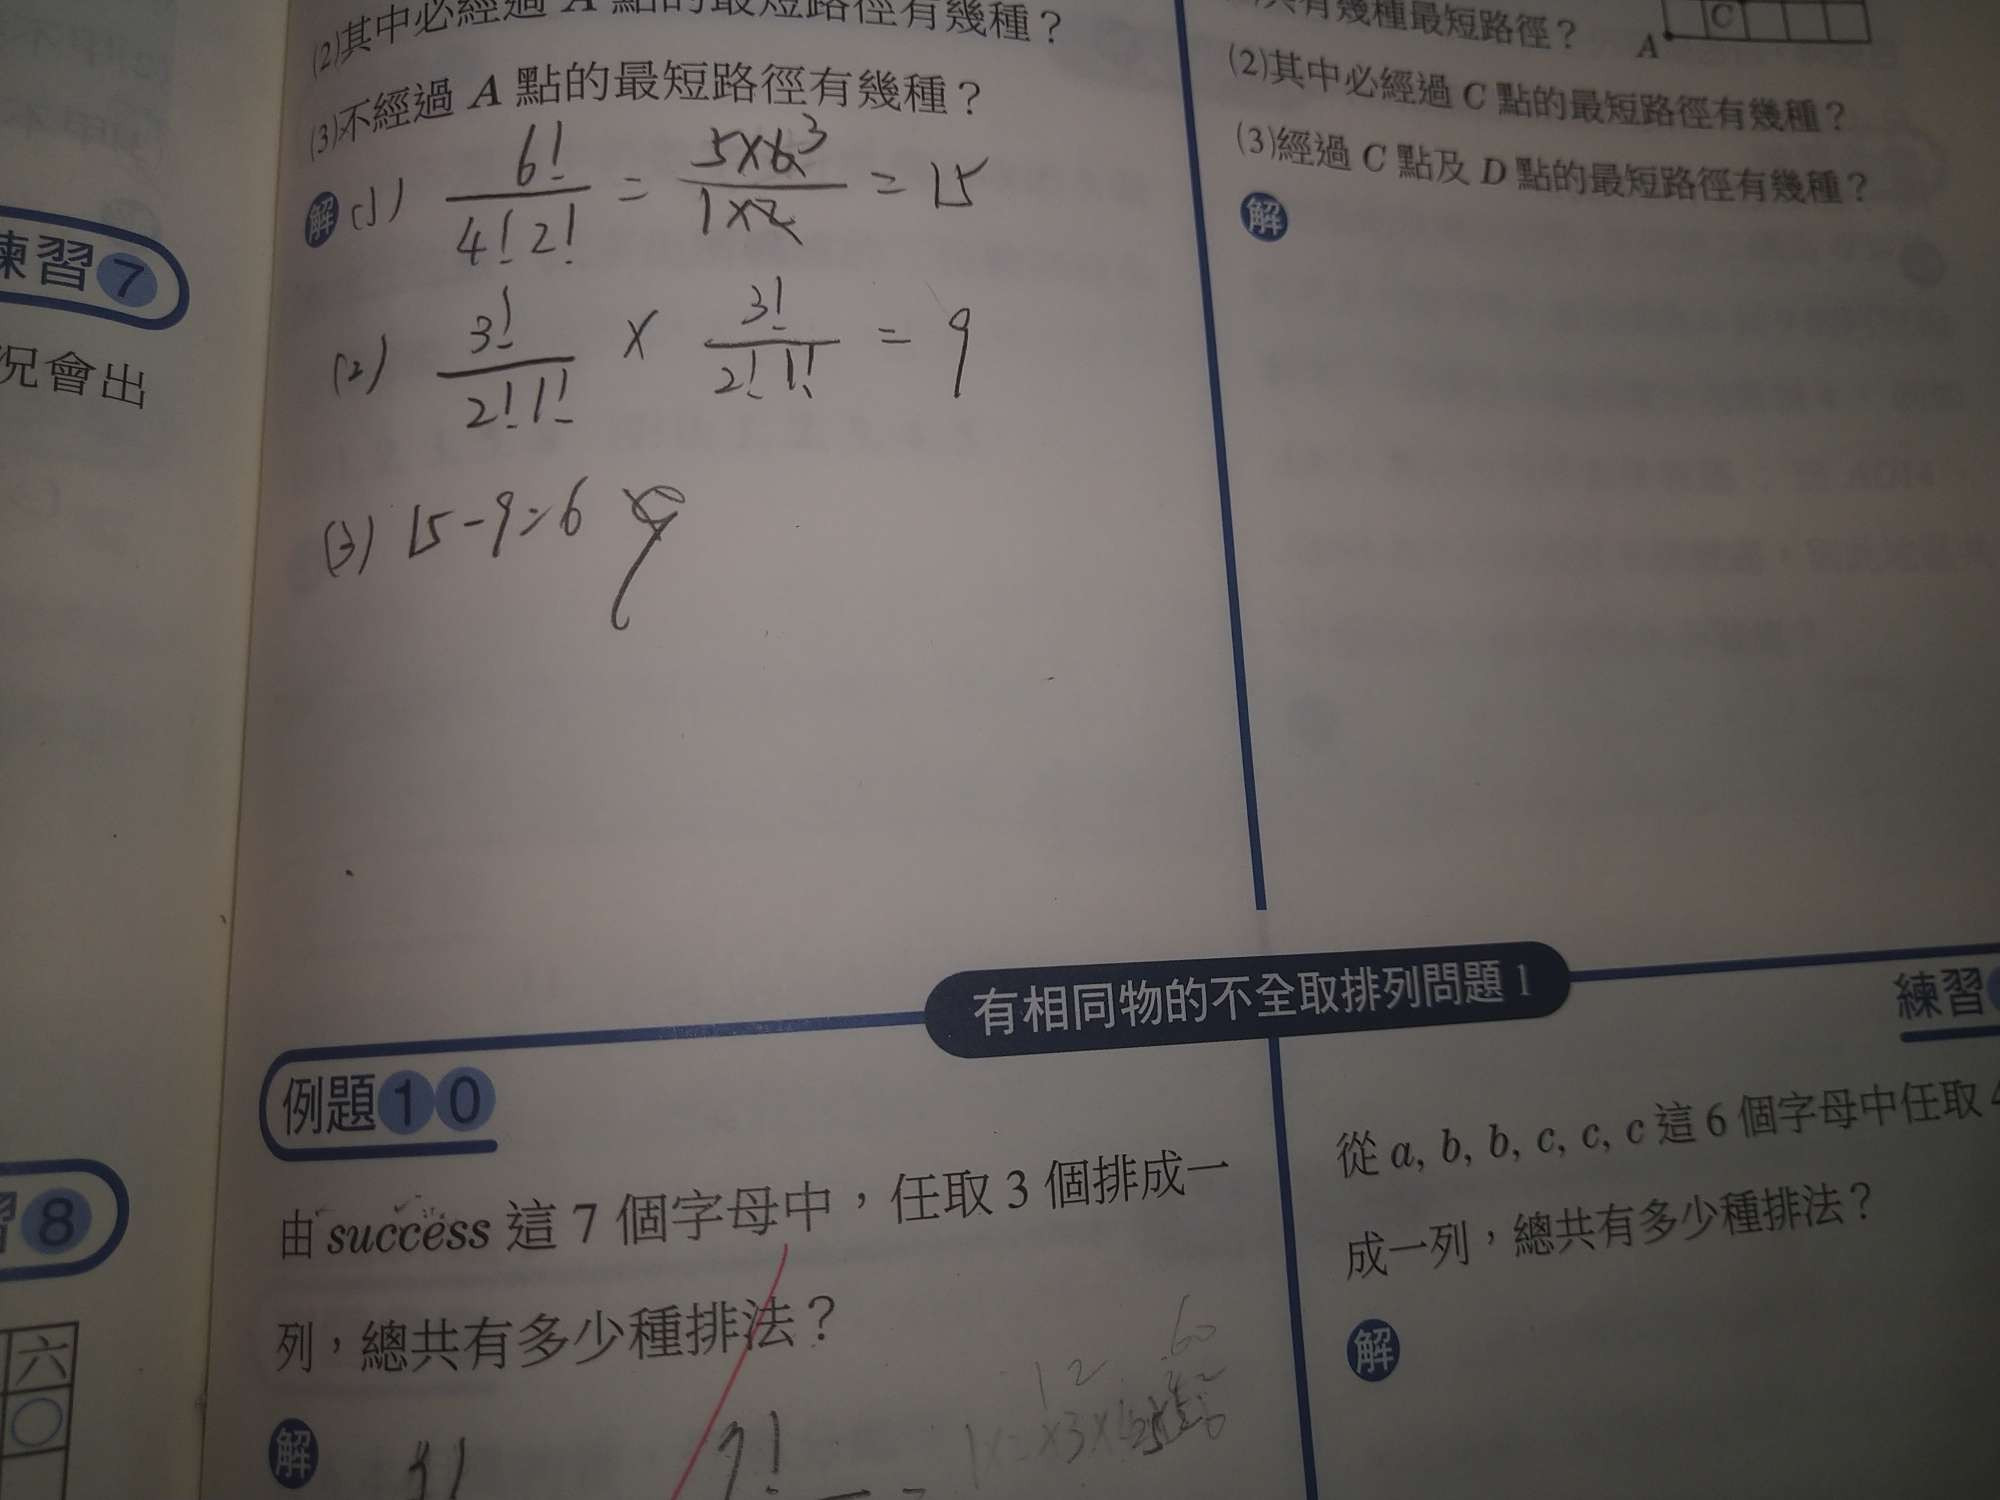 (2)其中必經過 A 點的最短路徑有幾種？
(3)不經過 A 點的最短路徑有幾種？
解 (1) 6! / 4! 2! = 5×6 3 / 1×2 = 15
(2) 3! / 2! 1! × 3! / 2! 1! = 9
(3) 15-9=6
練習7
況會出
8
六
有幾種最短路徑？
A
C
(2)其中必經過 C 點的最短路徑有幾種？
(3)經過 C 點及 D 點的最短路徑有幾種？
解
有相同物的不全取排列問題 1
例題10
由 success 這 7 個字母中，任取 3 個排成一
列，總共有多少種排法？
解
練習
從 a, b, b, c, c, c 這 6 個字母中任取
成一列，總共有多少種排法？
解